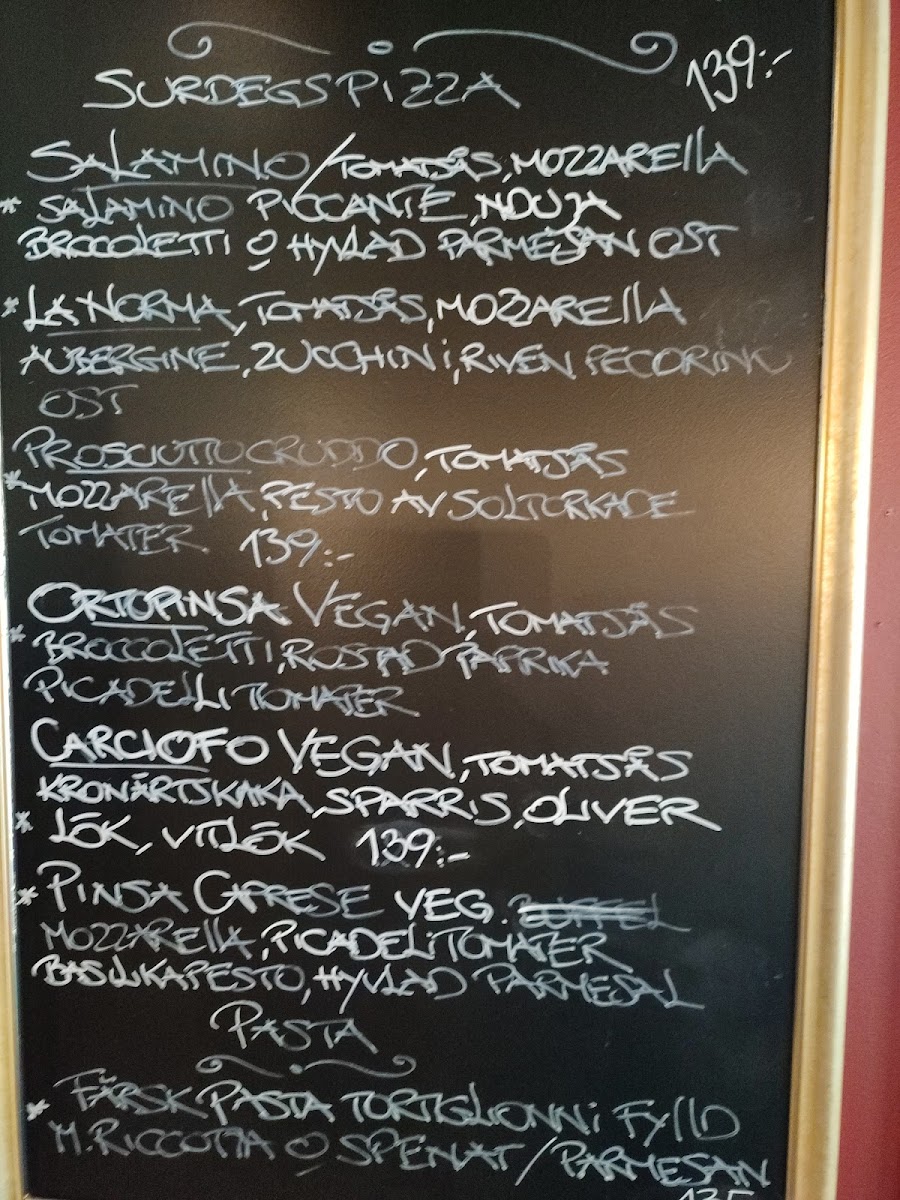 SURDEGSPIZZA 139:-
SALAMINO/TOMATSÅS, MOZZARELLA
* SALAMINO PICCANTE, NDUJA
BROCCOLETTI O HYVLAD PARMESAN OST
* LA NORMA, TOMATSÅS, MOZZARELLA
AUBERGINE, ZUCCHINI, RIVEN PECORINO
OST
PROSCIUTTO CRUDDO, TOMATSÅS
* MOZZARELLA, PESTO AV SOLTORKADE
TOMATER 139:-
ORTOPINSA VEGAN, TOMATSÅS
* BROCCOLETTI, ROSTAD PAPRIKA
PICADELLITOMATER
CARCIOFO VEGAN, TOMATSÅS
KRONÄRTSKAKA, SPARRIS, OLIVER
* LÖK, VITLÖK 139:-
* PINSA CAPRESE VEG.
MOZZARELLA, PICADELITOMATER
BASILIKAPESTO, HYVLAD PARMESAL
PASTA
* FÄRSK PASTA TORTIGLIONNI FYLLD
M. RICCOTTA O SPENAT/PARMESAN